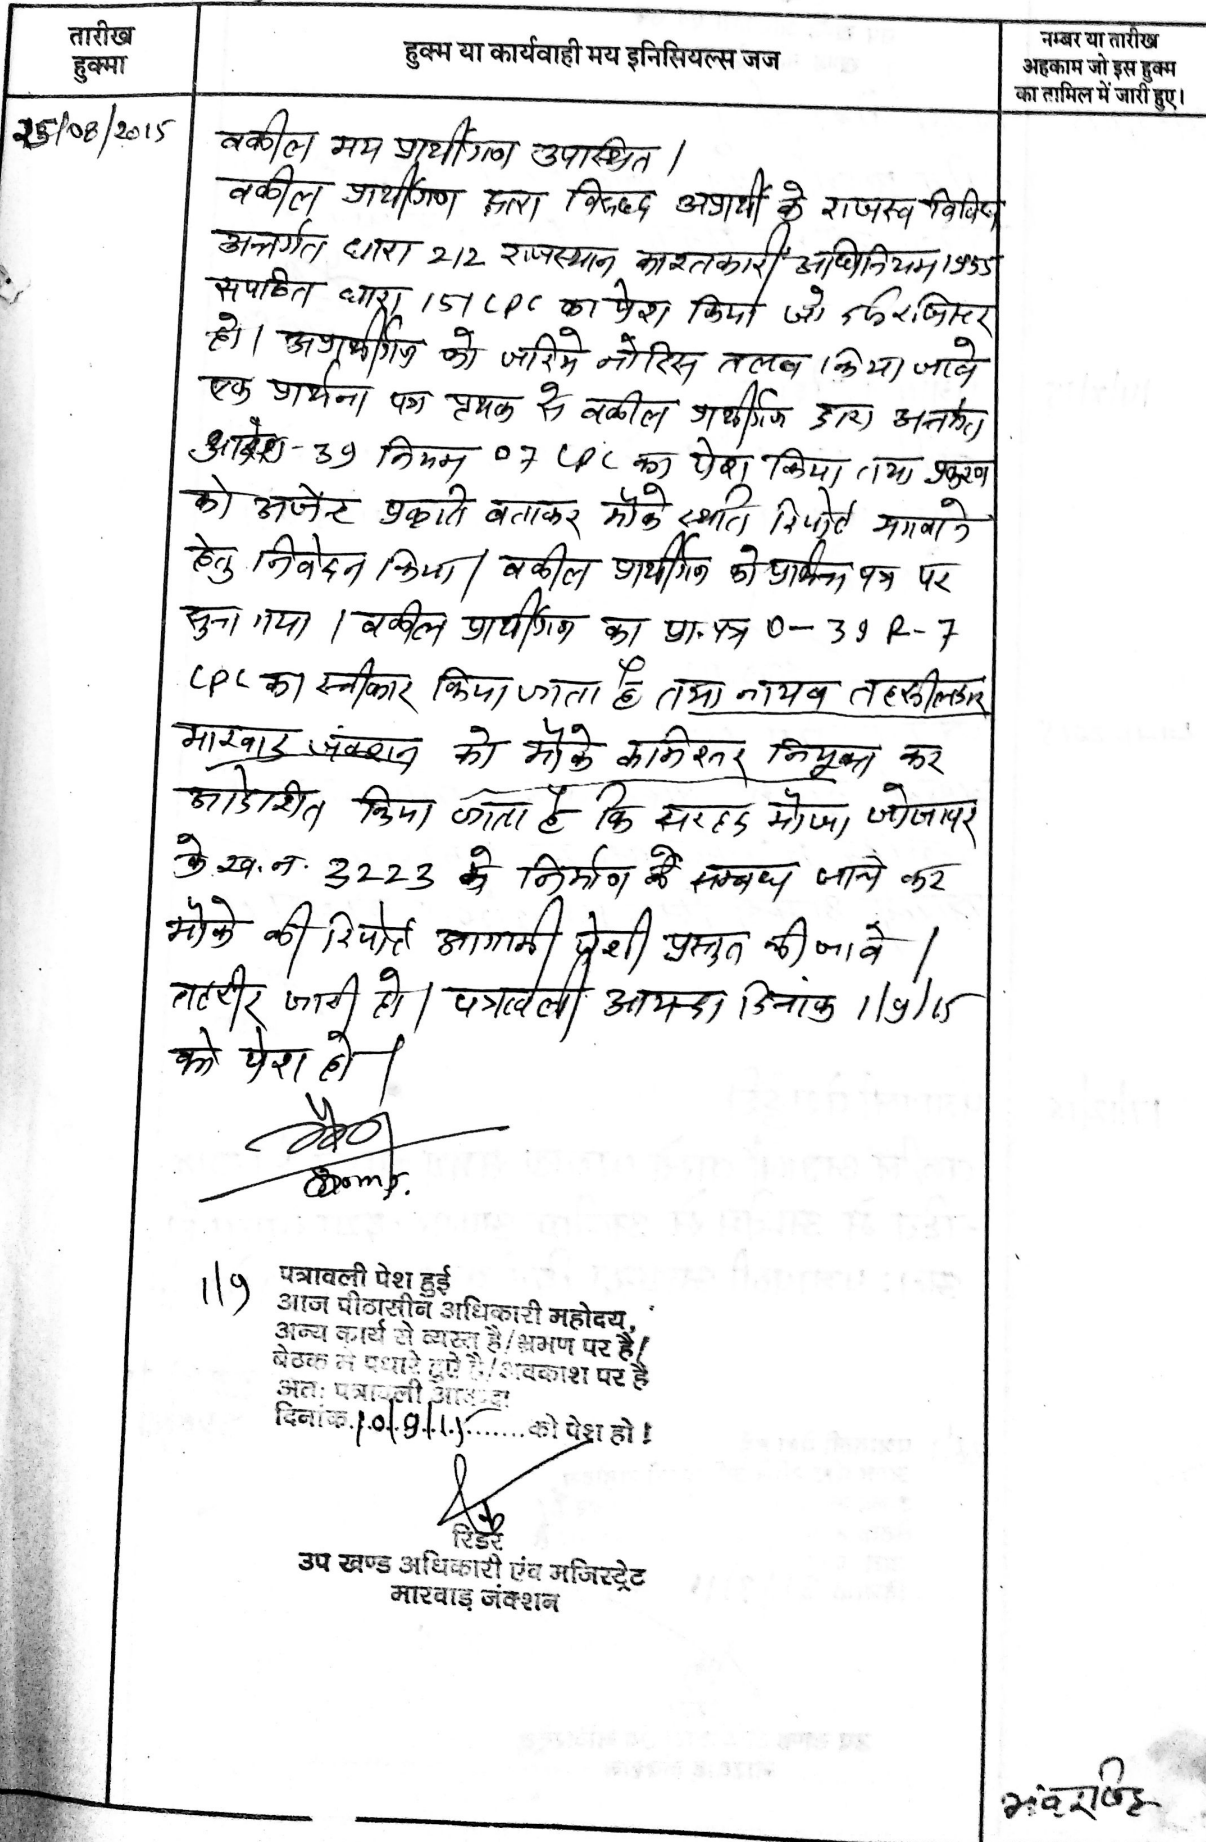 तारीख
हुक्मा
हुक्म या कार्यवाही मय इनिसियल्स जज
नम्बर या तारीख
अहकाम जो इस हुक्म
का तामिल में जारी हुए।
25/08/2015
वकील मय प्रार्थीगण उपास्थित।
वकील प्रार्थीगण द्वारा विरूद्ध अप्रार्थी के राजस्व विविध
अन्तर्गत धारा 212 राजस्थान काश्तकारी अधिनियम 1955
सपठित धारा 151 CPC का पेश किया जो दर्ज रजिस्टर
हो। अप्रार्थीगण को जरिये नोटिस तलब किया जावे
एक प्रार्थना पत्र पृथक से वकील प्रार्थीगण द्वारा अन्तर्गत
आदेश-39 नियम 07 CPC का पेश किया तथा प्रकरण
को अर्जेन्ट प्रकृति बताकर मौके स्थिति रिपोर्ट मंगवाने
हेतु निवेदन किया। वकील प्रार्थीगण को प्रार्थना पत्र पर
सुना गया। वकील प्रार्थीगण का प्रा.पत्र O-39 R-7
CPC का स्वीकार किया जाता है तथा नायब तहसीलदार
मारवाड़ जंक्शन को मौके कमिश्नर नियुक्त कर
आदेशित किया जाता है कि सरहद मौजा जोजावर
के ख.न. 3223 के निर्माण के सम्बन्ध जांच कर
मौके की रिपोर्ट आगामी पेशी प्रस्तुत की जावे।
तहरीर जारी हो। पत्रावली आयन्दा दिनांक 1/9/15
को पेश हो।
1/9
पत्रावली पेश हुई
आज पीठासीन अधिकारी महोदय,
अन्य कार्य से व्यस्त है/भ्रमण पर है/
बेठक मे पधारे हुऐ है/अवकाश पर है
अतः पत्रावली आयन्दा
दिनांक.10/9/15.......को पेश हो!
रिडर
उप खण्ड अधिकारी एंव मजिस्ट्रेट
मारवाड़ जंक्शन
भंवरसिंह